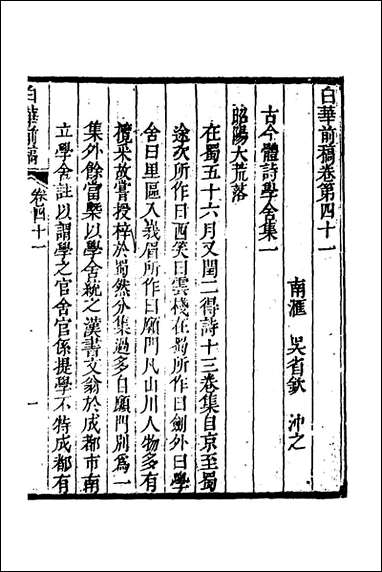 白華前稿卷第四十一
南滙 吳省欽 沖之
古今體詩學舍集一
昭陽大荒落
在蜀五十六月又閏二得詩十三卷集自京至蜀
途次所作曰西笑曰雲棧在蜀所作曰劍外曰學
舍曰里區入峩眉所作曰願門凡山川人物多有
攬采故嘗授梓於蜀然分集過多自願門別爲一
集外餘當槩以學舍統之漢書文翁於成都市南
立學舍註以謂學之官舍官係提學不特成都有
白華前稿
卷四十一
一